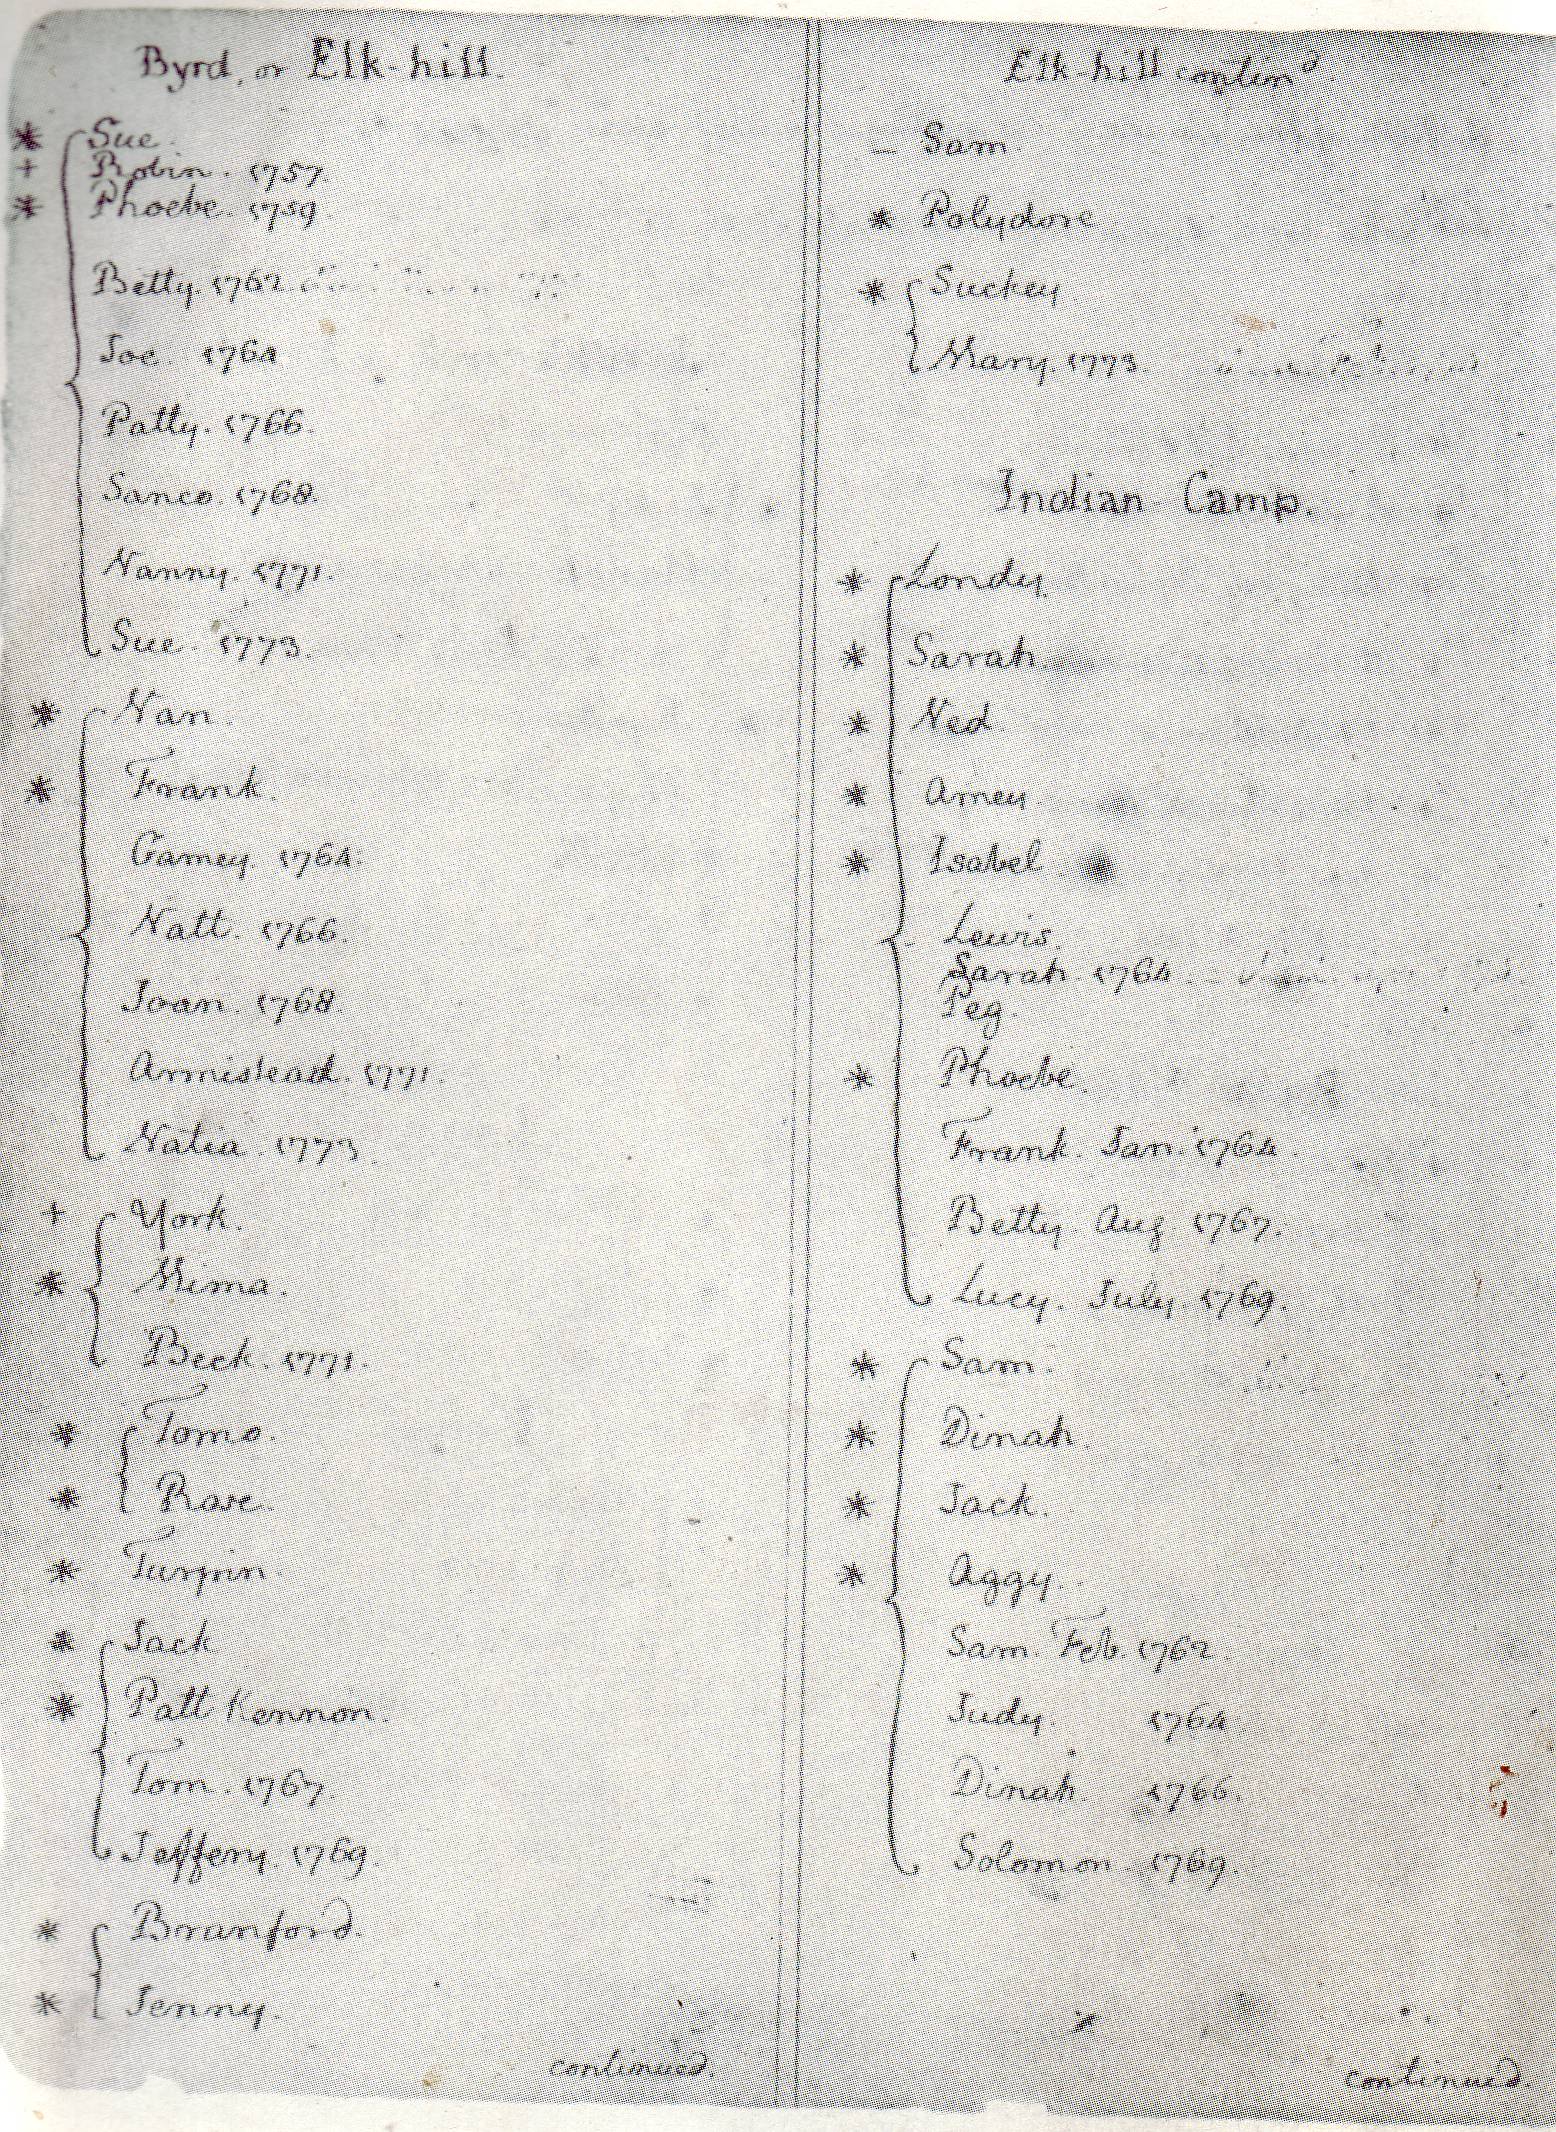 Byrd, or Elk-hill.
* Sue.
+ Robin. 1757.
* Phoebe. 1759.
Betty. 1762.
Joe. 1764
Patty. 1766.
Sanco. 1768.
Nanny. 1771.
Sue. 1773.
* Nan.
* Frank.
Gamey. 1764.
Natt. 1766.
Joan. 1768.
Armistead. 1771.
Natia 1773.
+ York.
* Mima.
Beck. 1771.
* Tomo.
* Rose.
* Turpin.
* Jack
* Patt Kennon.
Tom. 1767.
Jeffery. 1769.
* Branford.
* Jenny.
continued.
Elk-hill contind.
– Sam.
* Polydore
* Suckey.
Mary. 1773.
Indian Camp.
* Londy.
* Sarah.
* Ned.
* Amey.
* Isabel.
- Lewis.
Sarah. 1764.
Peg.
* Phoebe.
Frank. Jan. 1764.
Betty Aug. 1767.
Lucy. July. 1769.
* Sam.
* Dinah.
* Jack.
* Aggy.
Sam. Feb. 1762.
Judy. 1764.
Dinah. 1766.
Solomon. 1769.
continued.